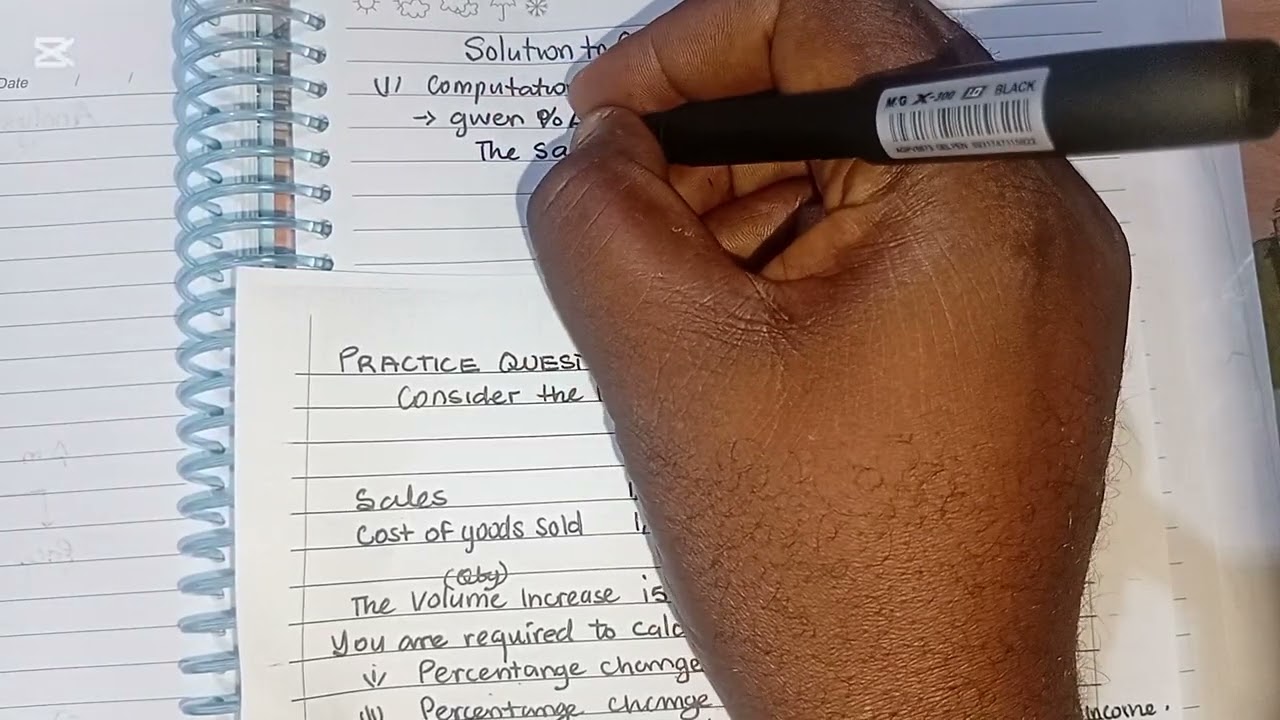 Date / /
Solution to
i/ Computation
→ given %
The sa
M&G X-300 BLACK
PRACTICE QUEST
Consider the
Sales
Cost of goods sold
(Qty)
The Volume Increase is
You are required to calc
i/ Percentange change
ii/ Percentange change
income.